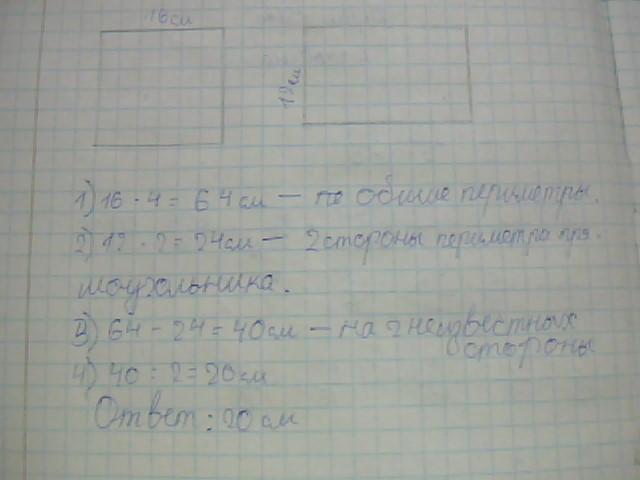 16см
12см
1) 16 · 4 = 64см — общие периметры.
2) 12 · 2 = 24см — 2 стороны периметра пря-
моугольника.
3) 64 - 24 = 40см — на 2 неизвестных
стороны
4) 40 : 2 = 20см
Ответ : 20 см